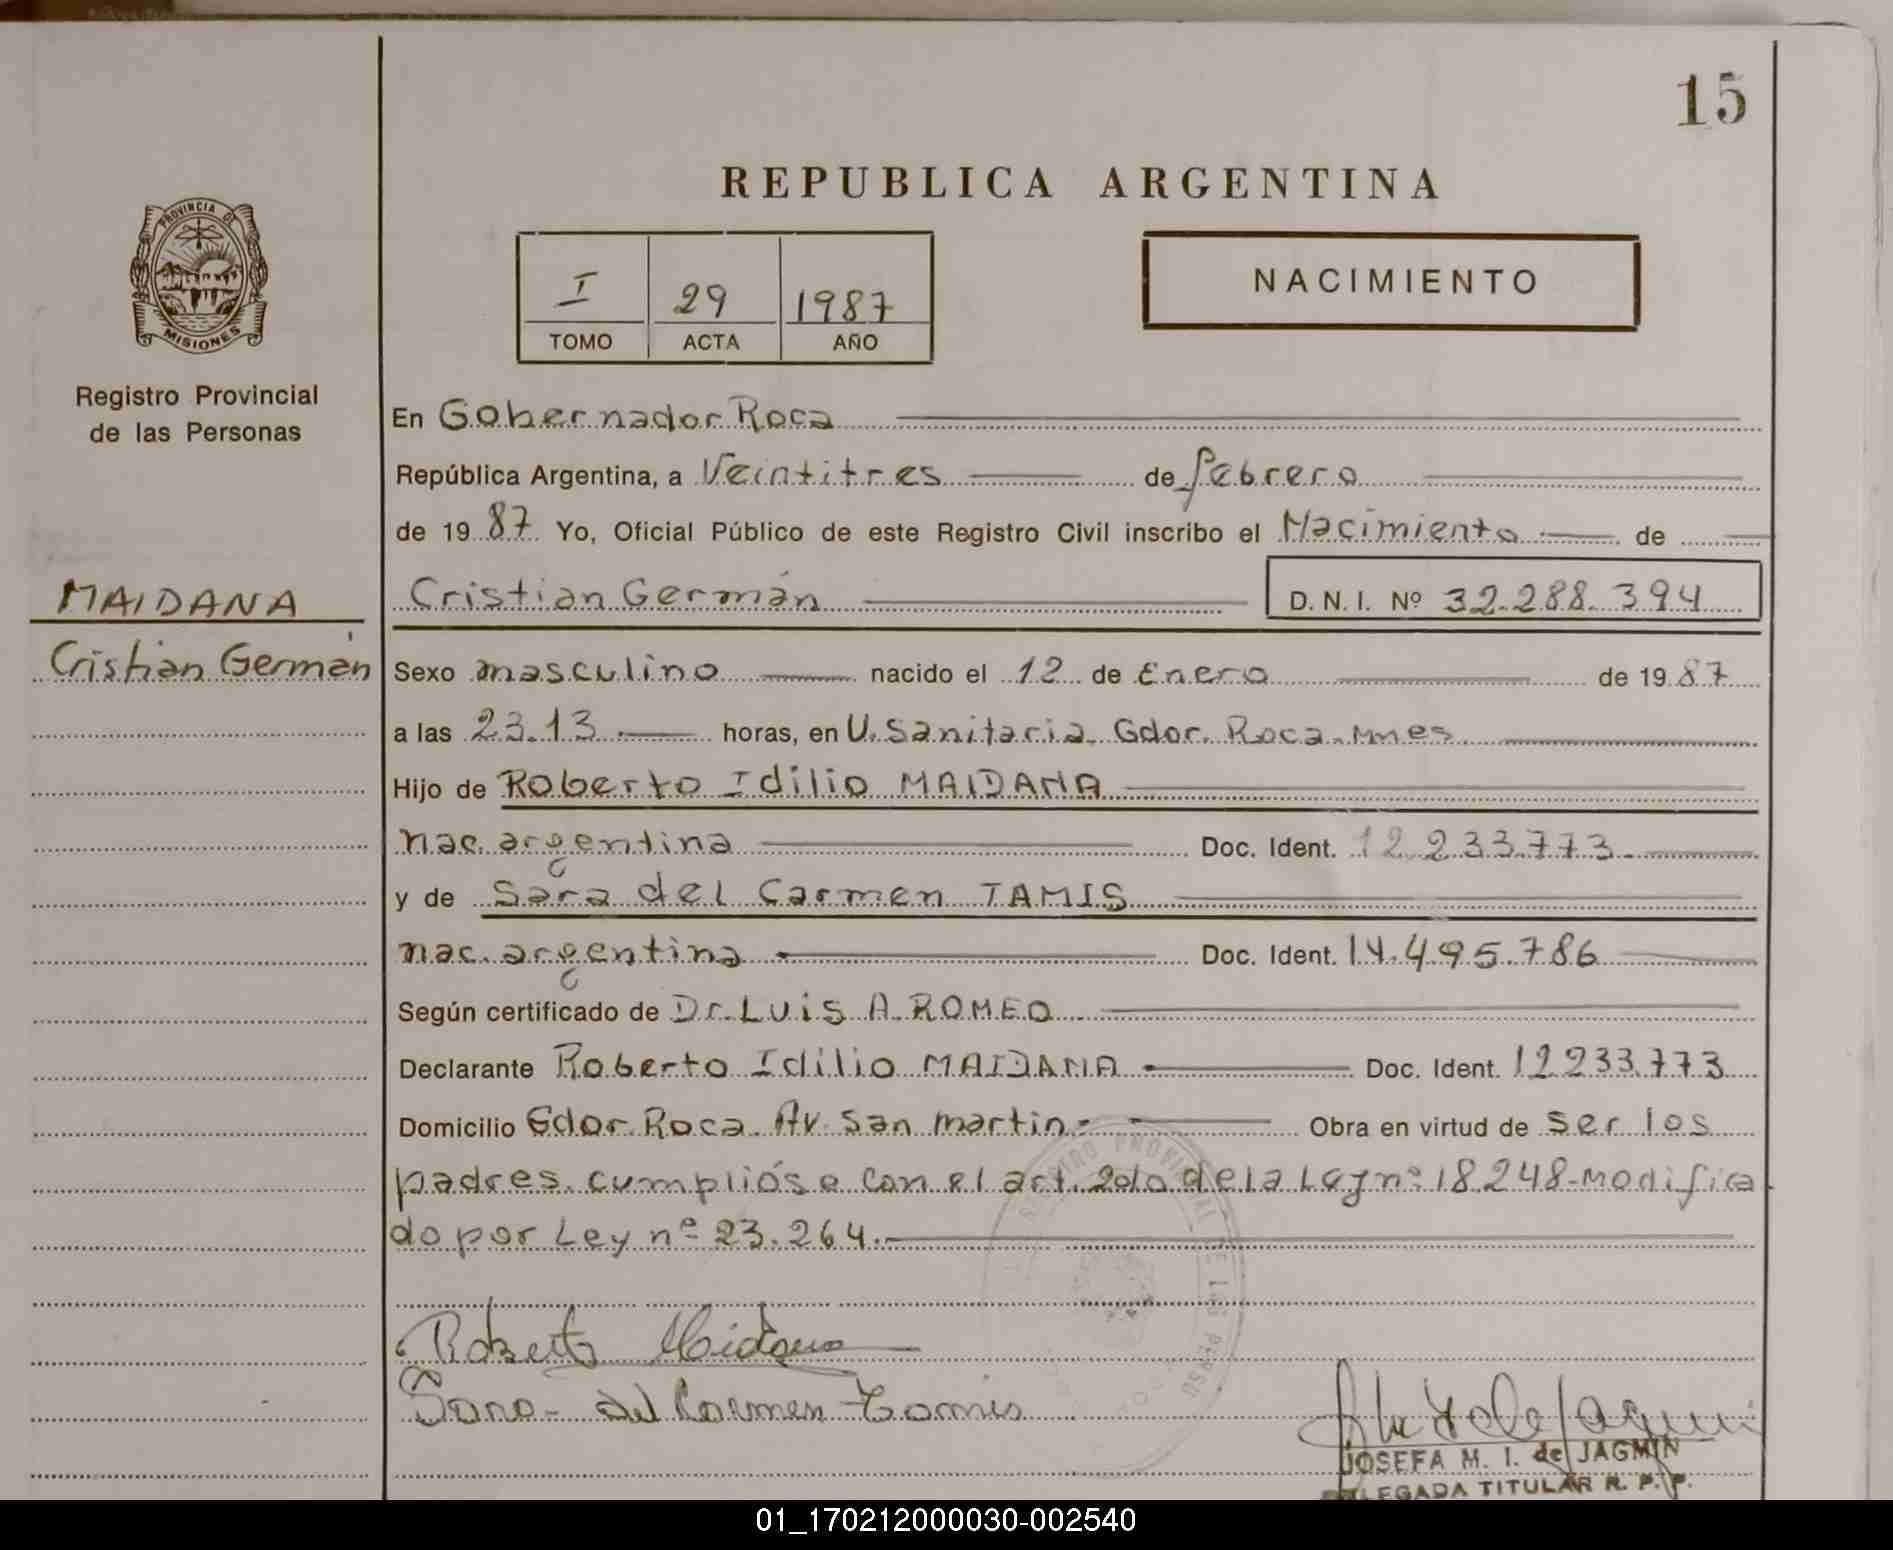 15
REPUBLICA ARGENTINA
PROVINCIA DE
MISIONES
I 29 1987
TOMO ACTA AÑO
NACIMIENTO
Registro Provincial
de las Personas
En Gobernador Roca
República Argentina, a Veintitres de febrero
de 19 87 Yo, Oficial Público de este Registro Civil inscribo el Nacimiento de
MAIDANA
Cristian Germán
Cristian Germán D. N. I. Nº 32.288.394
Sexo masculino nacido el 12 de Enero de 19 87
a las 23.13 horas, en U. Sanitaria Gdor. Roca. Mnes
Hijo de Roberto Idilio MAIDANA
nac. argentina Doc. Ident. 12.233.773
y de Sara del Carmen TAMIS
nac. argentina Doc. Ident. 14.495.786
Según certificado de Dr. LUIS A. ROMEO
Declarante Roberto Idilio MAIDANA Doc. Ident. 12233.773
Domicilio Gdor. Roca. Av. San Martin.- Obra en virtud de ser los
padres. cumplióse con el art. 2do de la Ley nº 18.248-modifica
do por Ley nº 23.264.-
REGISTRO PROVINCIAL DE LAS PERSO
Roberto Maidana
Sara del Carmen Tamis
JOSEFA M. I. de JAGMIN
DELEGADA TITULAR R. P. P.
01_170212000030-002540